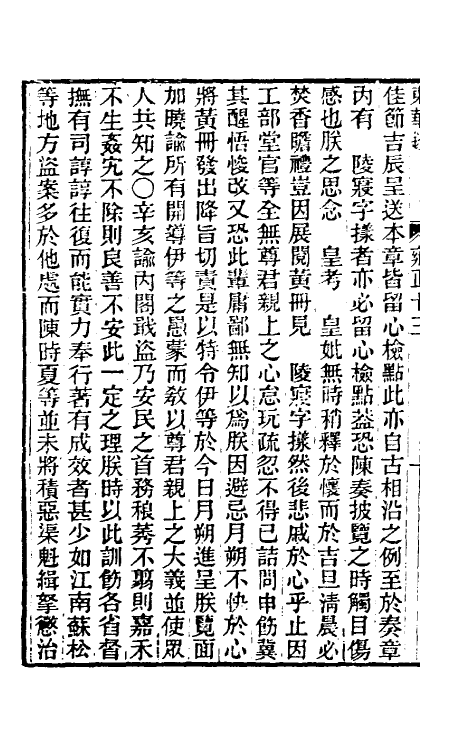 雍正十三
佳節吉辰呈送本章皆留心檢點此亦自古相沿之例至於奏章
內有　陵寢字樣者亦必留心檢點葢恐陳奏披覽之時觸目傷
感也朕之思念　皇考　皇妣無時稍釋於懷而於吉旦淸晨必
焚香瞻禮豈因展閱黃冊見　陵寢字樣然後悲戚於心乎止因
工部堂官等全無尊君親上之心怠玩疏忽不得已詰問申飭冀
其醒悟悛改又恐此輩庸鄙無知以爲朕因避忌月朔不快於心
將黃冊發出降旨切責是以特令伊等於今日月朔進呈朕覽面
加曉諭所有開導伊等之愚蒙而敎以尊君親上之大義並使眾
人共知之〇辛亥諭內閣戢盜乃安民之首務稂莠不翦則嘉禾
不生姦宄不除則良善不安此一定之理朕時以此訓飭各省督
撫有司諄諄往復而能實力奉行著有成效者甚少如江南蘇松
等地方盜案多於他處而陳時夏等並未將積惡渠魁緝拏懲治